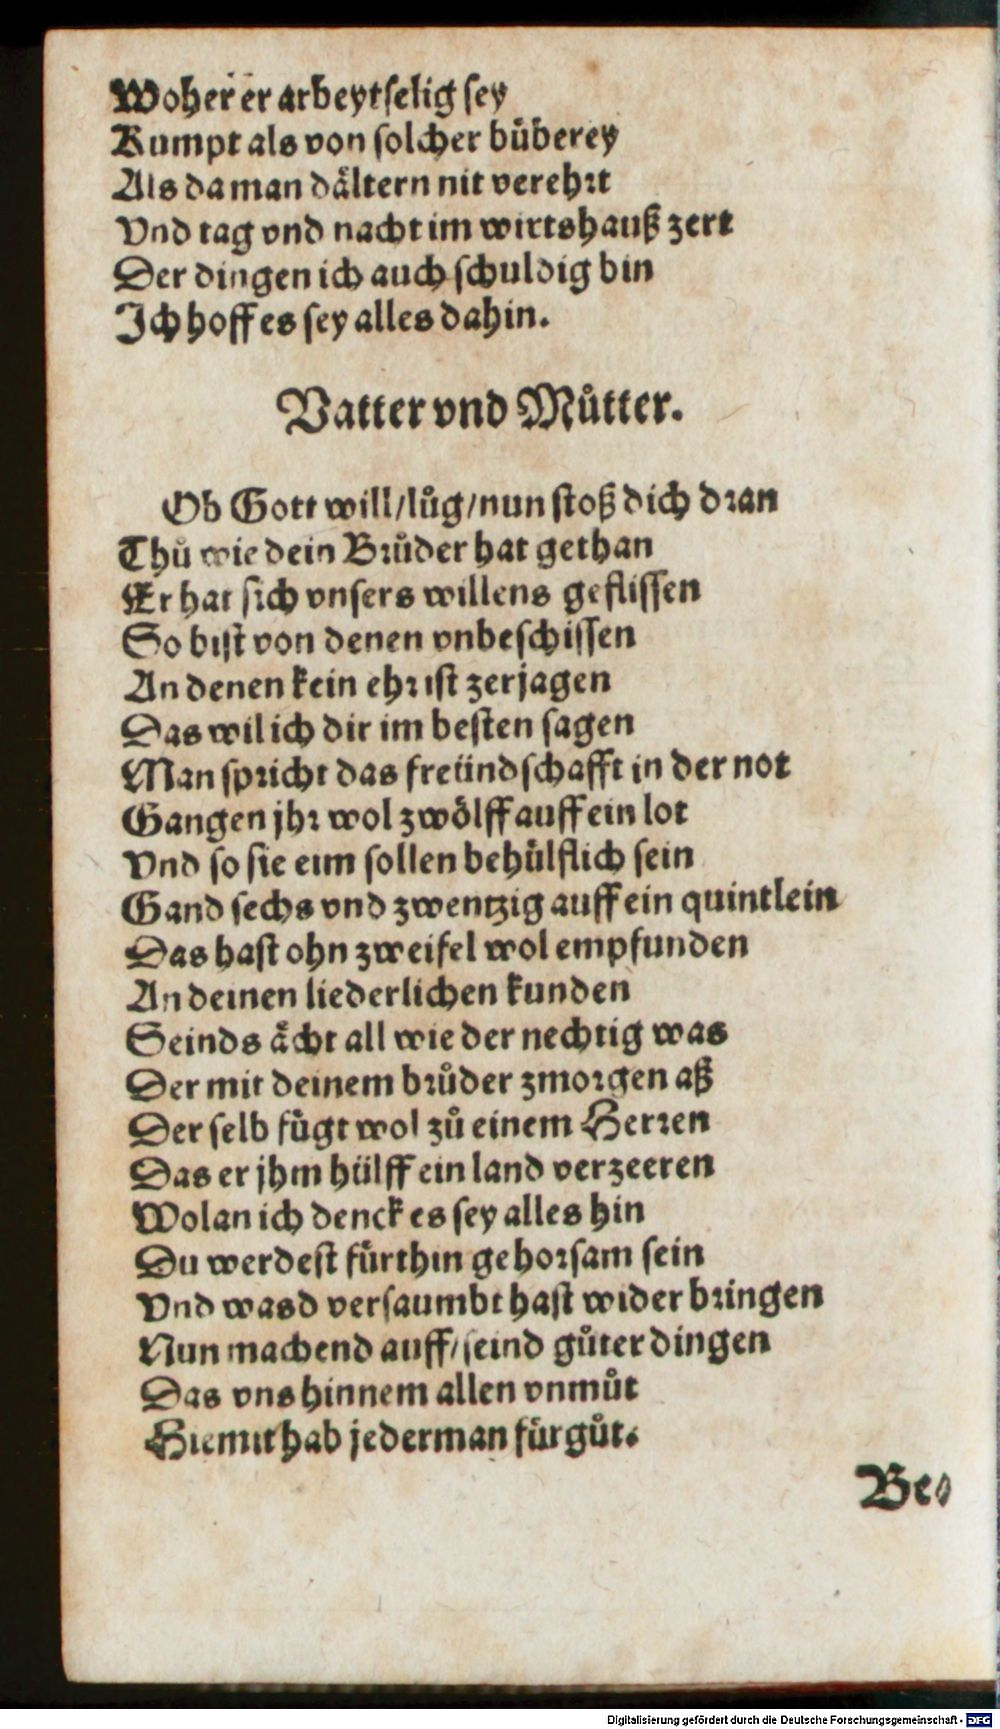 Woher er arbeytselig sey
Kumpt als von solcher bůberey
Als da man dåltern nit verehrt
Vnd tag vnd nacht im wirtshauß zert
Der dingen ich auch schuldig bin
Jch hoff es sey alles dahin.
Vatter vnd Můtter.
Ob Gott will/lůg/nun stoß dich dran
Thů wie dein Brůder hat gethan
Er hat sich vnsers willens geflissen
So bist von denen vnbeschissen
An denen kein ehr ist zerjagen
Das wil ich dir im besten sagen
Man spricht das freündschafft in der not
Gangen jhr wol zwölff auff ein lot
Vnd so sie eim sollen behülflich sein
Gand sechs vnd zwentzig auff ein quintlein
Das hast ohn zweifel wol empfunden
An deinen liederlichen kunden
Seinds ächt all wie der nechtig was
Der mit deinem brůder zmorgen aß
Der selb fügt wol zů einem Herren
Das er jhm hülff ein land verzeeren
Wolan ich denck es sey alles hin
Du werdest fürthin gehorsam sein
Vnd wasd versaumbt hast wider bringen
Nun machend auff/seind gůter dingen
Das vns hinnem allen vnmůt
Hiemit hab jederman für gůt.
Be-
Digitalisierung gefördert durch die Deutsche Forschungsgemeinschaft - DFG